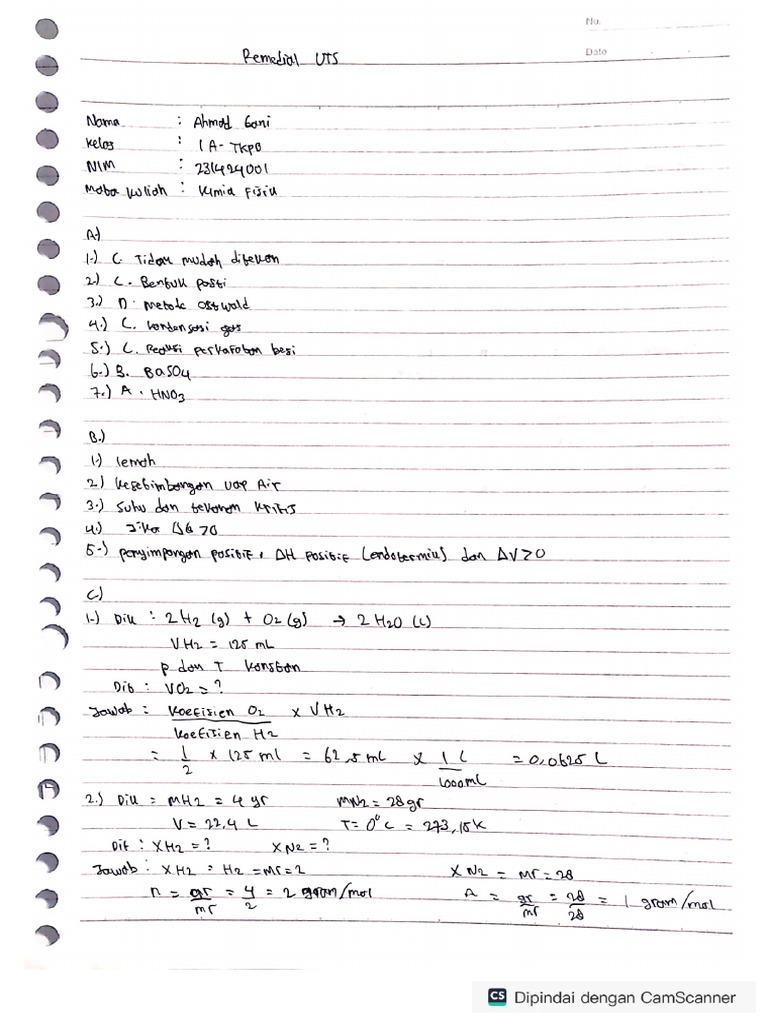 No.
Date
Remedial UTS
Nama : Ahmad Gani
Kelas : 1A-TKPB
NIM : 231424001
Mata Kuliah : Kimia Fisik
A.)
1.) C. Tidak mudah ditekan
2.) C. Bentuk pasti
3.) D. metode ostwald
4.) C. kondensasi gas
5.) C. Reduksi perkaratan besi
6.) B. BaSO4
7.) A. HNO3
B.)
1.) lemah
2.) kesetimbangan uap Air
3.) Suhu dan tekanan kritis
4.) Jika ΔG > 0
5.) penyimpangan positif, ΔH positif (endotermius) dan ΔV > 0
C.)
1.) Dik : 2 H2 (g) + O2 (g) → 2 H2O (l)
VH2 = 125 mL
P dan T konstan
Dit : VO2 = ?
Jawab : Koefisien O2 x VH2
Koefisien H2
= 1/2 x 125 ml = 62,5 mL x 1 L = 0,0625 L
1000mL
2.) Dik = MH2 = 4 gr MN2 = 28 gr
V = 22,4 L T = 0°C = 273,15K
Dit : XH2 = ? XN2 = ?
Jawab : XH2 = H2 = Mr = 2 XN2 = Mr = 28
n = gr/mr = 4/2 = 2 gram/mol n = gr/mr = 28/28 = 1 gram/mol
CS Dipindai dengan CamScanner